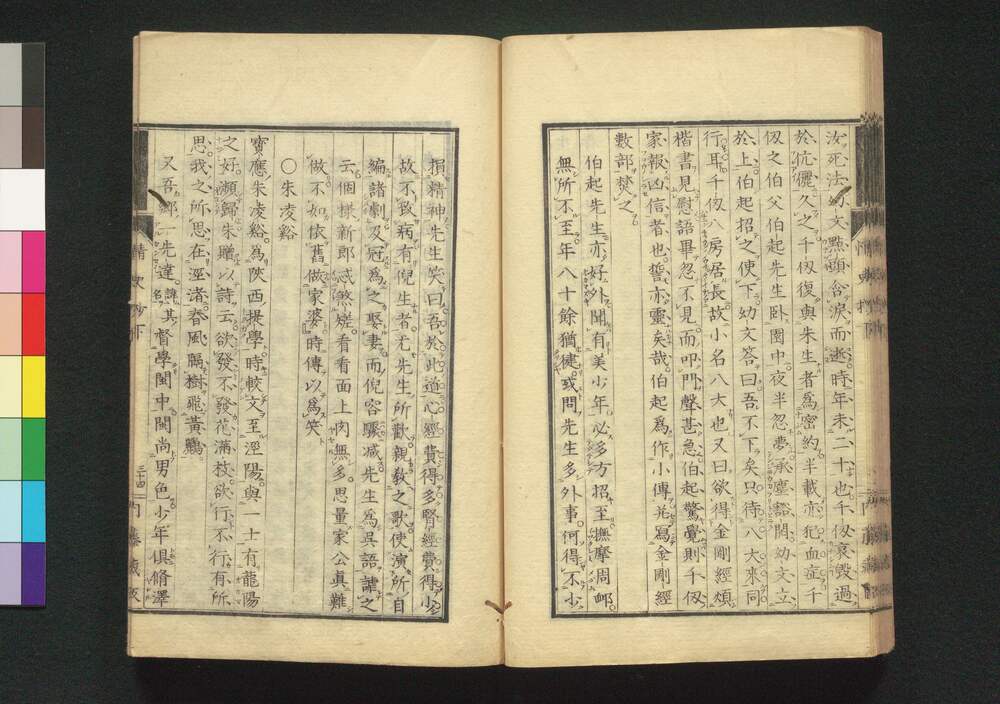 汝死法幼文點頭含淚而逝時年未二十也千仞哀毀過
於伉儷久之千仞復與朱生者爲密約半載亦犯血症千
仞之伯父伯起先生卧園中夜半忽夢承塵豁開幼文立
於上伯起招之使下幼文答曰吾不下矣只待八大來同
行耳千仞八房居長故小名八大也又曰欲得金剛經煩
楷書見慰語畢忽不見而叩門聲甚急伯起驚覺則千仞
家報凶信者也誓亦靈矣哉伯起爲作小傳並寫金剛經
數部焚之
伯起先生亦好外聞有美少年必多方招至撫摩周邮
無所不至年八十餘猶健或問先生多外事何得不少
損精神先生笑曰吾於此道心經費得多腎經費得少
故不致病有倪生者尤先生所歡親敎之歌使演所自
編諸劇及冠爲之娶妻而倪容驟减先生爲吳語謔之
云個樣新郎忒煞矬看看面上肉無多思量家公眞難
做不如依舊做家婆時傳以爲笑
○朱凌谿
寶應朱凌谿爲陝西提學時較文至涇陽與一士有龍陽
之好瀕歸朱贈以詩云欲發不發花滿枝欲行不行有所
思我之所思在涇渚春風隔樹飛黃鸝
又吾鄉一先達諱其名督學閩中閩尚男色少年俱脩澤
情史抄下
三十四